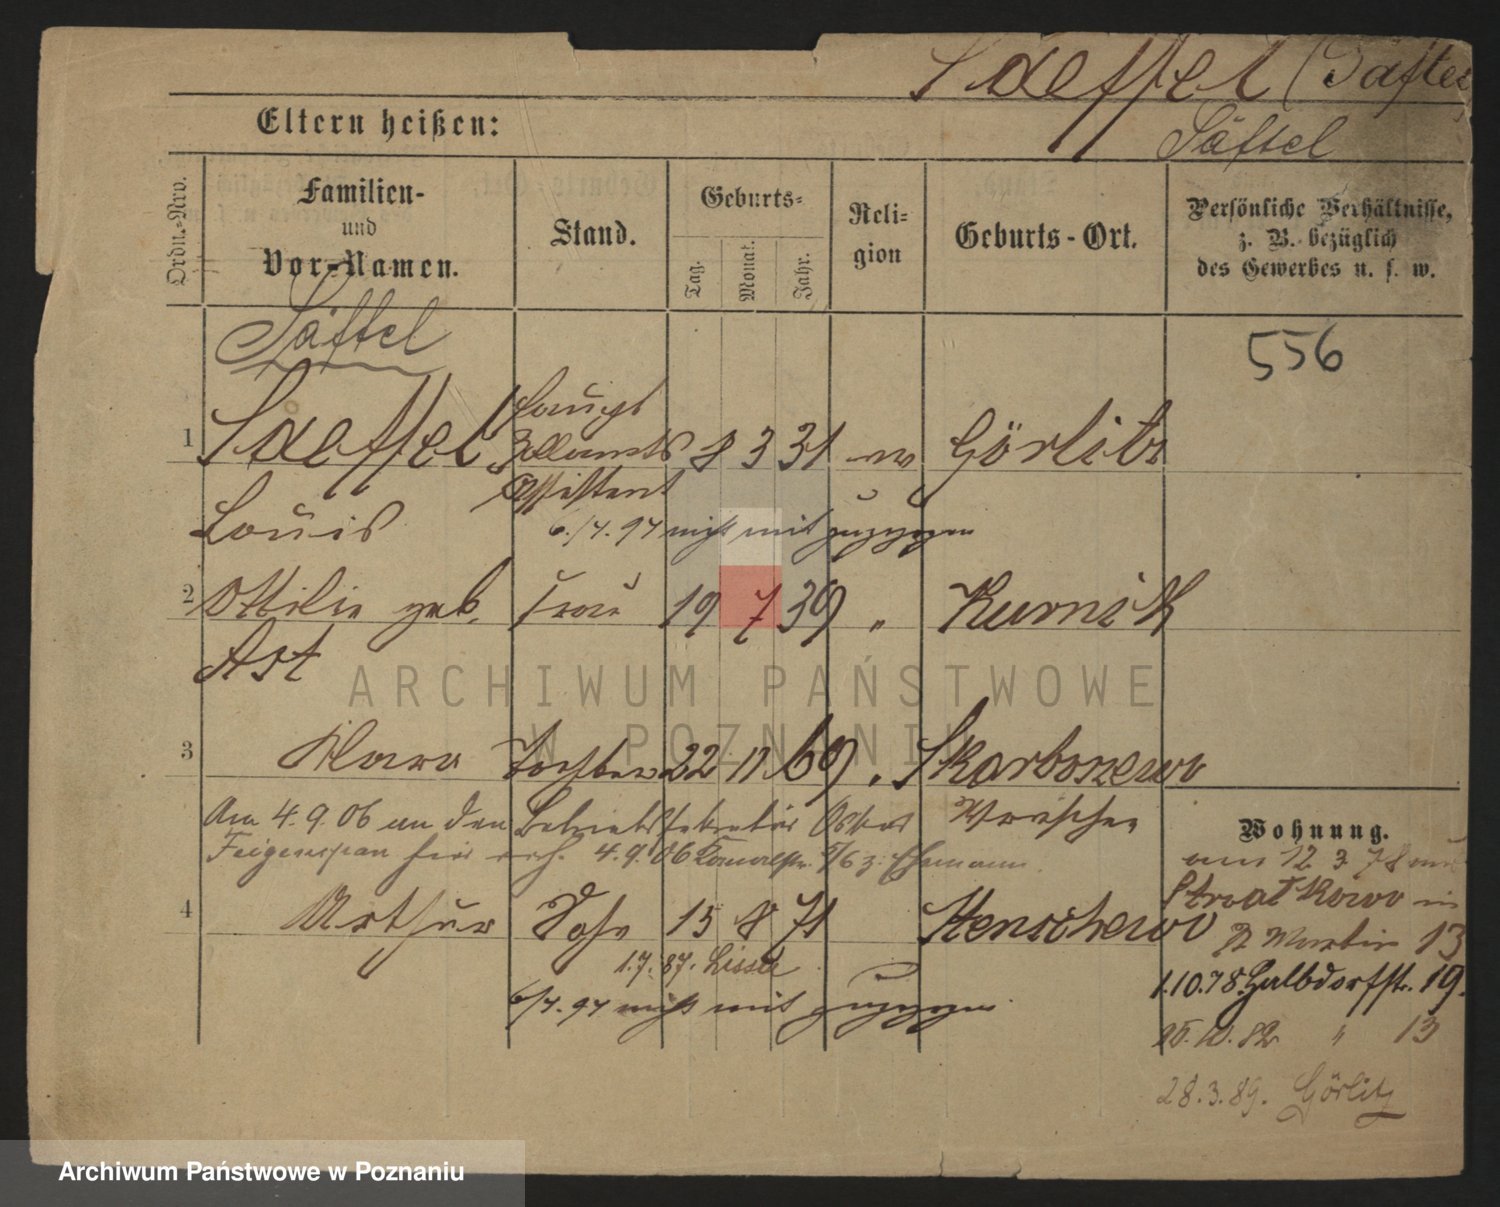 Saeffel (Säftel
Säftel
Eltern heißen:
Ordn.-Nro.
Familien-
und
Vor-Namen.
Stand.
Geburts-
Tag.
Monat.
Jahr.
Reli-
gion
Geburts-Ort.
Persönliche Verhältnisse,
z. B. bezüglich
des Gewerbes u. s. w.
Säftel
556
1 Saeffel Haupt
Zollamts 8 3 31 ev Görlitz
Assistent
Louis
6./4. 97 nicht mit zugezogen
2 Ottilie geb. Frau 19 7 39 " Kurnik
Ast
ARCHIWUM PAŃSTWOWE
W POZNANIU
3 Klara Tochter 22 11 69 " Skarboszewo
Wreschen
Am 4.9.06 an den Betriebssekretär Oskar
Feigenspan hier verh. 4.9.06 5/6 z. Ehemann.
4 Arthur Sohn 15 8 71 Stenschewo
1.7.87. Lissa
6/4.97 nicht mit zugezogen.
Wohnung.
am 12 3 78 aus
Stralkowo in
St Martin 13
1.10.78 Halbdorfstr. 19.
25.10.82 " 13
28.3.89. Görlitz
Archiwum Państwowe w Poznaniu